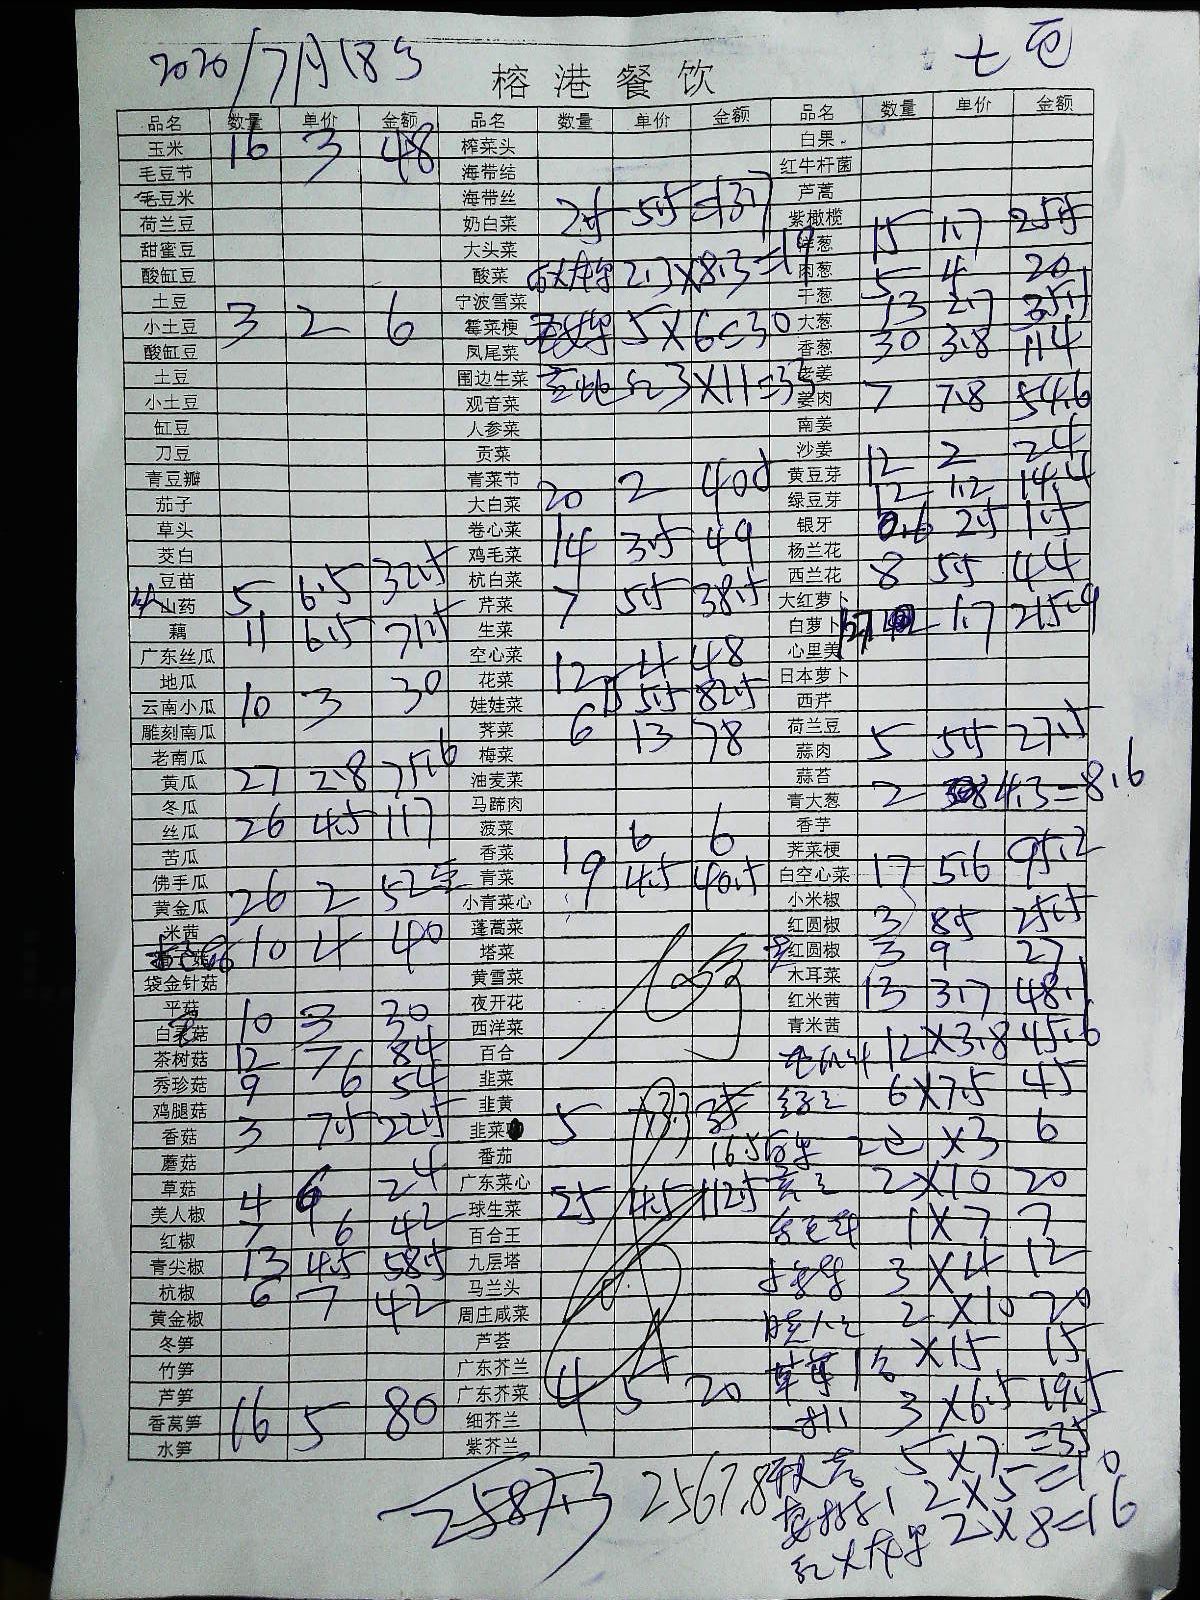 2020/7月18号
榕港餐饮
品名 数量 单价 金额 品名 数量 单价 金额 品名 数量 单价 金额
玉米 16 3 48 榨菜头 白果
毛豆节 海带结 红牛杆菌
毛豆米 海带丝 芦蒿
荷兰豆 奶白菜 25 5.5 =13.7 紫橄榄
甜蜜豆 大头菜 洋葱 15 1.7 25.5
酸缸豆 酸菜 2.3×8.3=19 肉葱 5 4 20
土豆 宁波雪菜 干葱 13 2.7 35.1
小土豆 3 2 6 霉菜梗 5×6=30 大葱
酸缸豆 凤尾菜 香葱 30 3.8 114
土豆 围边生菜 3×11=33 老姜
小土豆 观音菜 姜肉 7 7.8 54.6
缸豆 人参菜 南姜
刀豆 贡菜 沙姜 12 2 24
青豆瓣 青菜节 黄豆芽 12 1.2 14.4
茄子 大白菜 20 2 40 绿豆芽
草头 卷心菜 银牙 0.6 2.5 1.5
茭白 鸡毛菜 14 3.5 49 杨兰花
豆苗 杭白菜 西兰花 8 5.5 44
山药 5 6.5 32.5 芹菜 7 5.5 38.5 大红萝卜
藕 11 6.5 71.5 生菜 白萝卜 1.7 215.9
广东丝瓜 空心菜 心里美
地瓜 花菜 12 4 48 日本萝卜
云南小瓜 10 3 30 娃娃菜 15 5.5 82.5 西芹
雕刻南瓜 荠菜 6 13 78 荷兰豆
老南瓜 梅菜 蒜肉 5 5.5 27.5
黄瓜 27 2.8 75.6 油麦菜 蒜苔
冬瓜 马蹄肉 青大葱 2 4.3=8.6
丝瓜 26 4.5 117 菠菜 香芋
苦瓜 香菜 1 6 6 荠菜梗
佛手瓜 青菜 9 4.5 40.5 白空心菜 17 5.6 95.2
黄金瓜 26 2 52 小青菜心 小米椒
米茜 蓬蒿菜 红圆椒 3 8.5 25.5
10 4 40 塔菜 红圆椒 3 9 27
袋金针菇 黄雪菜 木耳菜
平菇 夜开花 红米茜 13 3.7 48.1
白菇 10 3 30 西洋菜 青米茜
茶树菇 12 7 84 百合 12×3.8 45.6
秀珍菇 9 6 54 韭菜 6×7.5 45
鸡腿菇 韭黄
香菇 3 7.5 22.5 韭菜 5 ×3.3 16.5 ×3 6
蘑菇 番茄
草菇 4 6 24 广东菜心 2×10 20
美人椒 球生菜 25 4.5 112.5
红椒 7 6 42 百合王 1×7 7
青尖椒 13 4.5 58.5 九层塔 3×4 12
杭椒 6 7 42 马兰头
黄金椒 周庄咸菜 2×10 20
冬笋 芦荟 ×15 15
竹笋 广东芥兰
芦笋 广东芥菜 4 5 20 3×6.5 19.5
香莴笋 16 5 80 细芥兰
水笋 紫芥兰 5×7=35
2587.3 2567.8 2×5=10
红火龙果 2×8=16